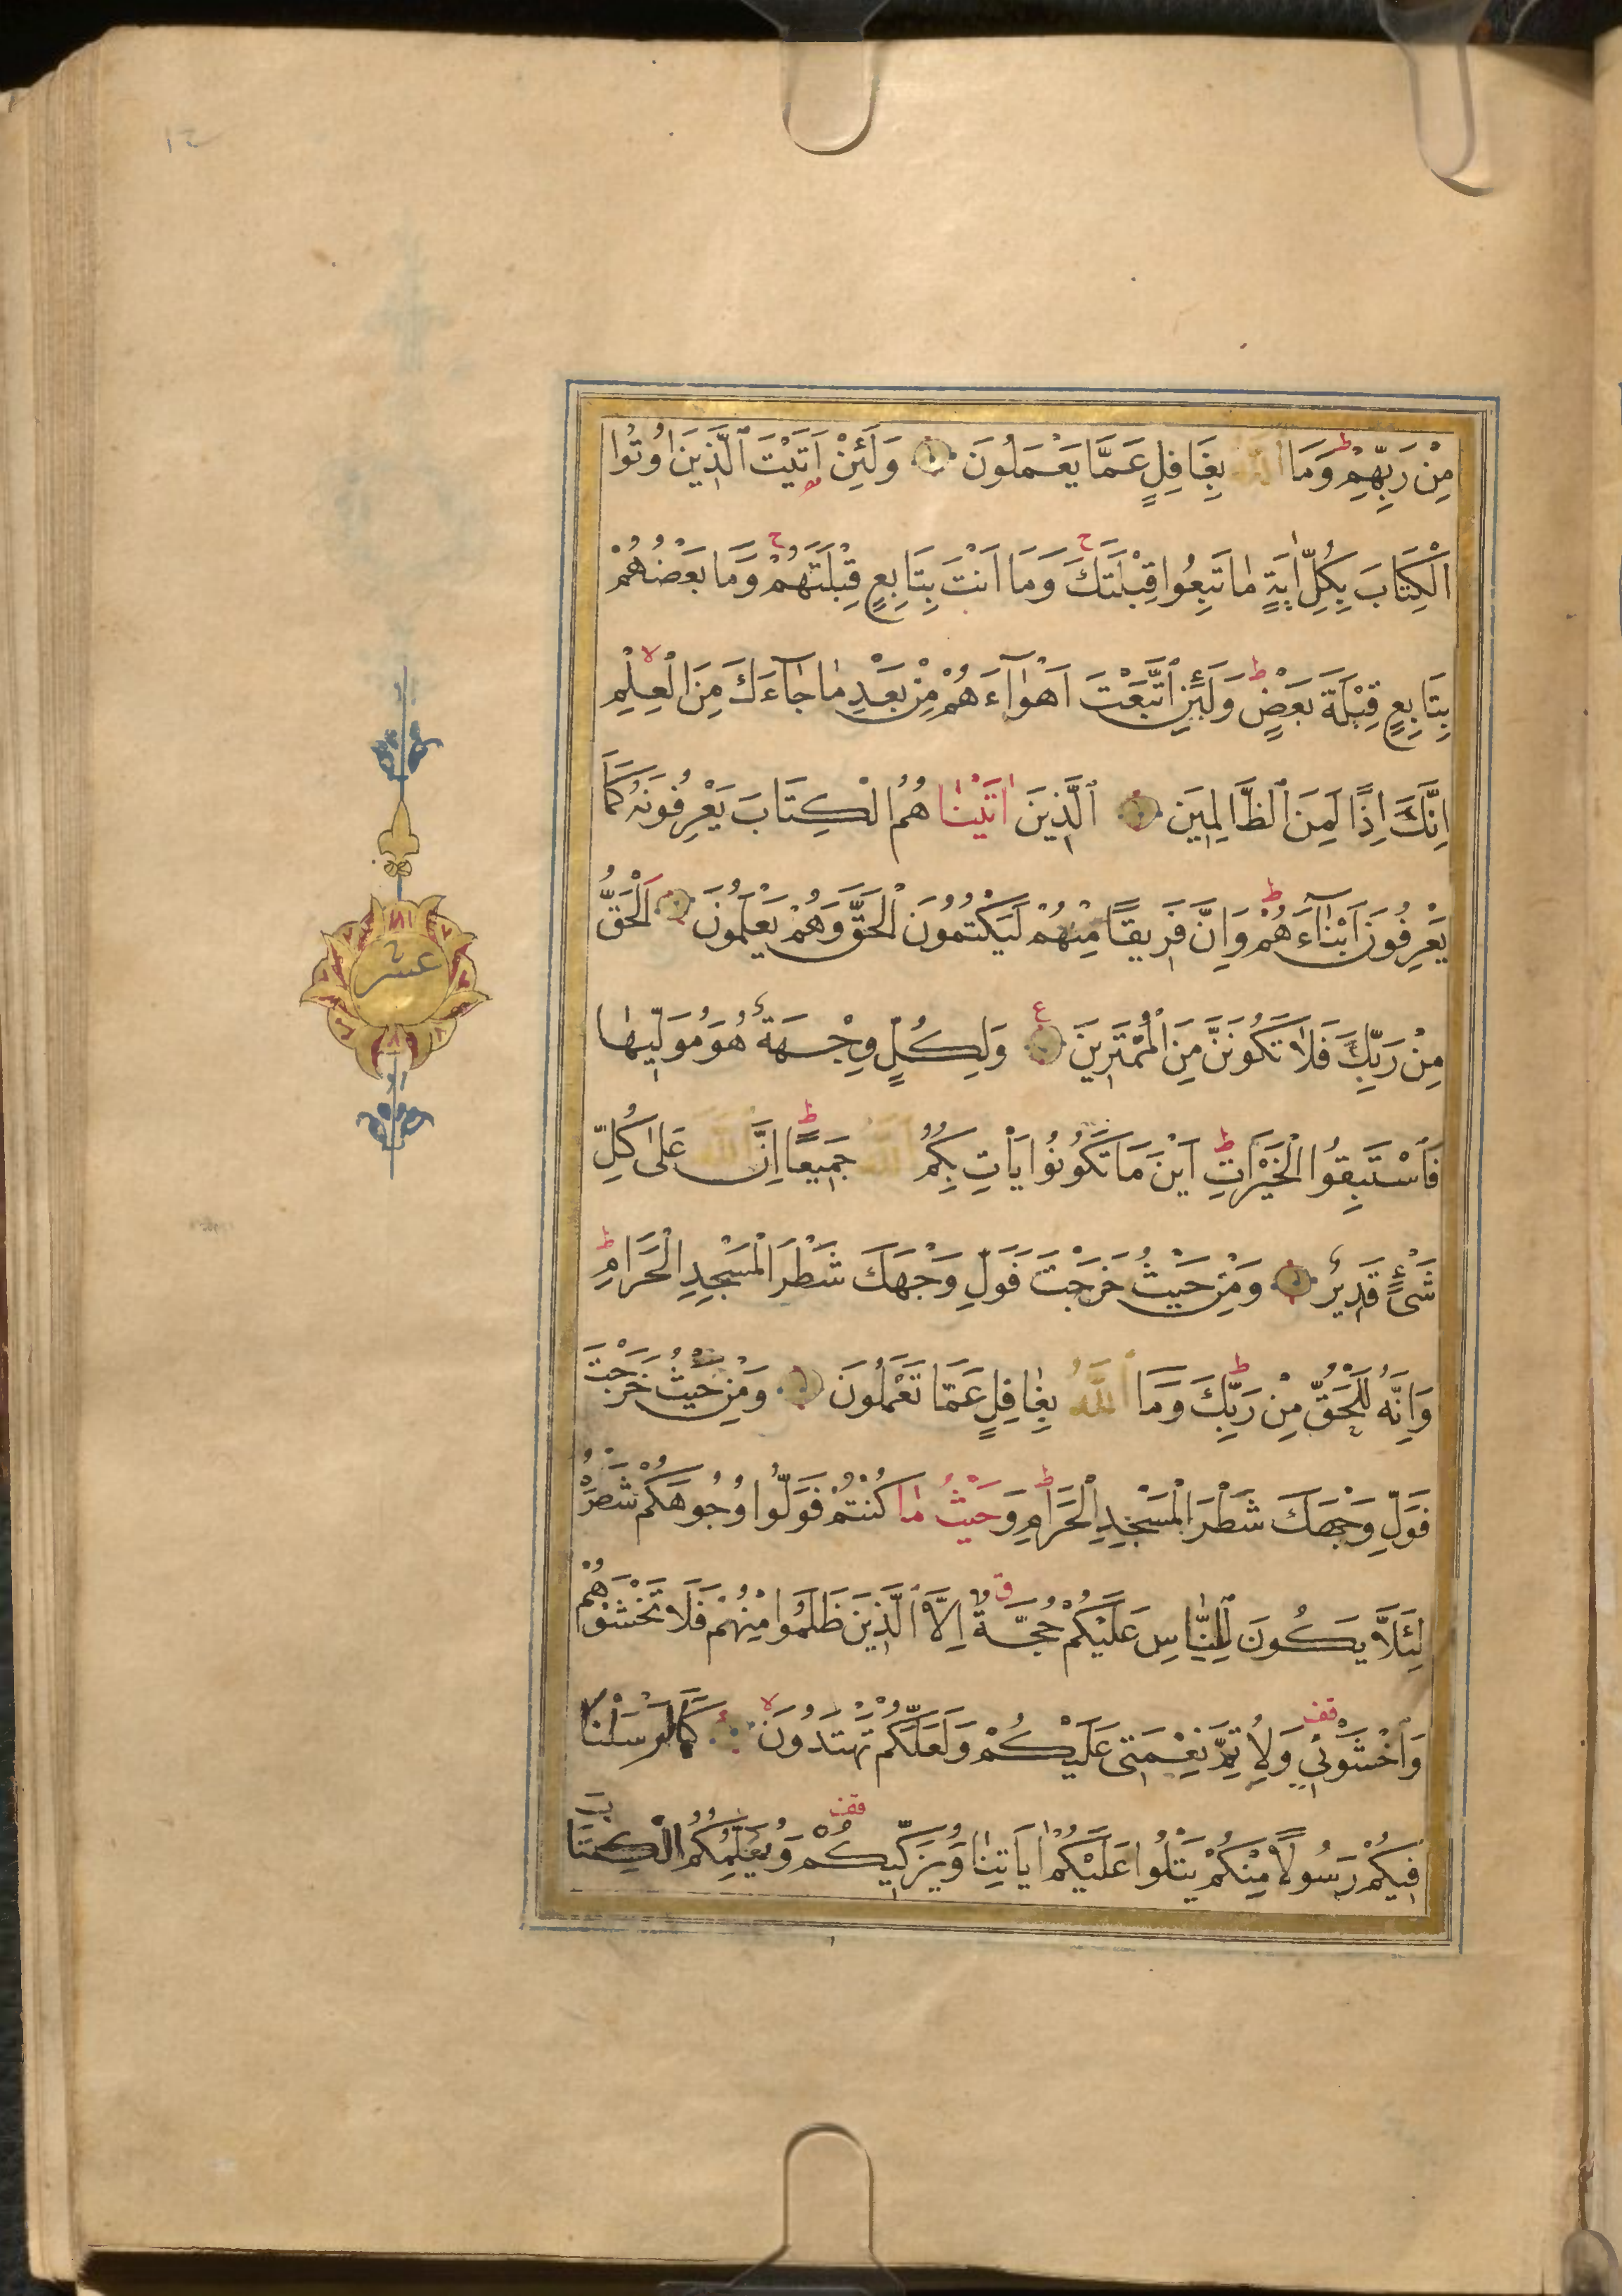 مِنْ رَبِّهِمْ ط وَمَا اللّٰهُ بِغَافِلٍ عَمَّا يَعْمَلُونَ وَلَئِنْ اَتَيْتَ الَّذِينَ اُوتُوا
الْكِتَابَ بِكُلِّ اٰيَةٍ مٰا تَبِعُوا قِبْلَتَكَ ح وَمَا اَنْتَ بِتَابِعٍ قِبْلَتَهُمْ ح وَمَا بَعْضُهُمْ
بِتَابِعٍ قِبْلَةَ بَعْضٍ ط وَلَئِنِ اتَّبَعْتَ اَهْوٰآءَهُمْ مِنْ بَعْدِ مٰا جٰآءَكَ مِنَ الْعِلْمِ لا
اِنَّكَ اِذًا لَمِنَ الظَّالِمِينَ اَلَّذِينَ اٰتَيْنٰاهُمُ الْكِتَابَ يَعْرِفُونَهُ كَمَا
يَعْرِفُونَ اَبْنٰآءَهُمْ ط وَاِنَّ فَرِيقًا مِنْهُمْ لَيَكْتُمُونَ الْحَقَّ وَهُمْ يَعْلَمُونَ اَلْحَقُّ
مِنْ رَبِّكَ فَلَا تَكُونَنَّ مِنَ الْمُمْتَرِينَ ع وَلِكُلٍّ وِجْهَةٌ هُوَ مُوَلِّيهٰا
فَاسْتَبِقُوا الْخَيْرَاتِ ط اَيْنَ مَا تَكُونُوا يَاْتِ بِكُمُ اللّٰهُ جَمِيعًا ط اِنَّ اللّٰهَ عَلىٰ كُلِّ
شَىْءٍ قَدِيرٌ وَمِنْ حَيْثُ خَرَجْتَ فَوَلِّ وَجْهَكَ شَطْرَ الْمَسْجِدِ الْحَرَامِ ط
وَاِنَّهُ لَلْحَقُّ مِنْ رَبِّكَ ط وَمَا اللّٰهُ بِغٰافِلٍ عَمَّا تَعْمَلُونَ وَمِنْ حَيْثُ خَرَجْتَ
فَوَلِّ وَجْهَكَ شَطْرَ الْمَسْجِدِ الْحَرَامِ ط وَحَيْثُ مٰا كُنْتُمْ فَوَلُّوا وُجُوهَكُمْ شَطْرَهُ
لِئَلَّا يَكُونَ لِلنّٰاسِ عَلَيْكُمْ حُجَّةٌ ق اِلَّا الَّذِينَ ظَلَمُوا مِنْهُمْ فَلَا تَخْشَوْهُمْ
وَاخْشَوْنِي قف وَلِاُتِمَّ نِعْمَتِى عَلَيْكُمْ وَلَعَلَّكُمْ تَهْتَدُونَ لا كَمَا اَرْسَلْنَا
فِيكُمْ رَسُولًا مِنْكُمْ يَتْلُوا عَلَيْكُمْ اٰيَاتِنٰا وَيُزَكِّيكُمْ قف وَيُعَلِّمُكُمُ الْكِتَابَ
عشر